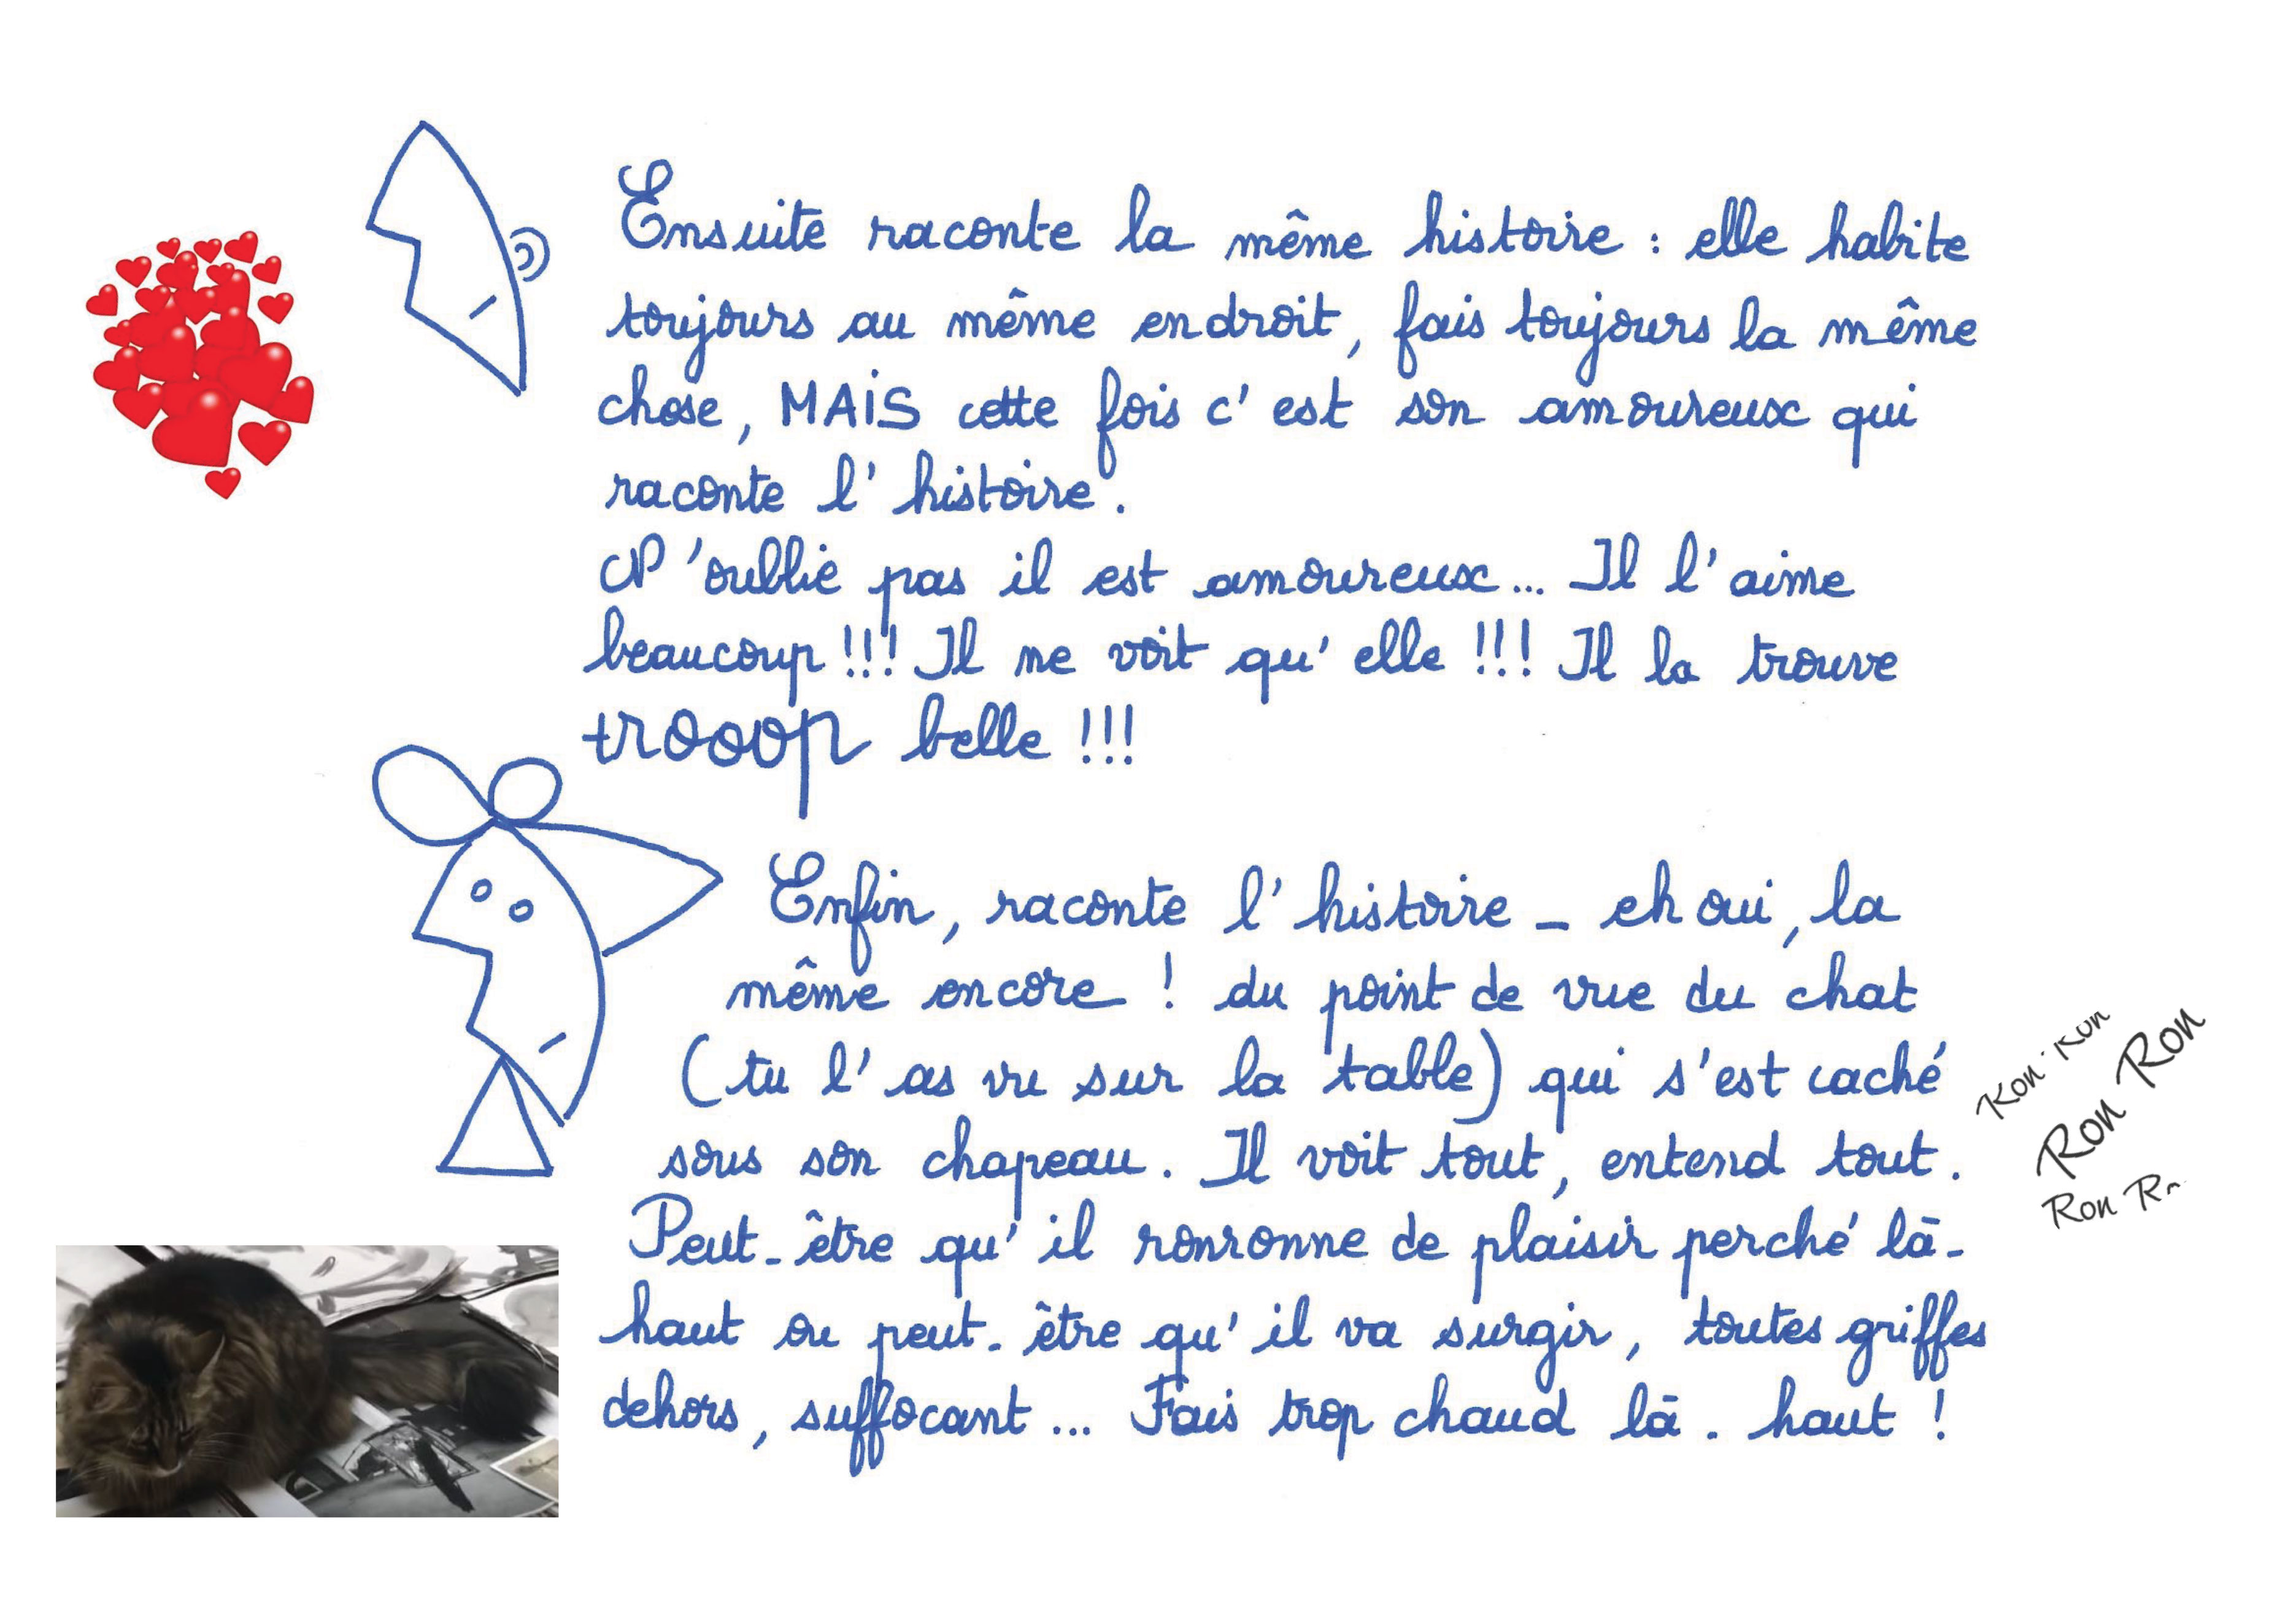 Ensuite raconte la même histoire : elle habite
toujours au même endroit, fais toujours la même
chose, MAIS cette fois c'est son amoureux qui
raconte l'histoire.
N'oublie pas il est amoureux... Il l'aime
beaucoup !!! Il ne voit qu'elle !!! Il la trouve
trooop belle !!!
Enfin, raconte l'histoire - eh oui, la
même encore ! du point de vue du chat
(tu l'as vu sur la table) qui s'est caché
sous son chapeau. Il voit tout, entend tout.
Peut-être qu'il ronronne de plaisir perché là-
haut ou peut-être qu'il va surgir, toutes griffes
dehors, suffocant... Fais trop chaud là-haut !
Ron Ron
Ron Ron
Ron R